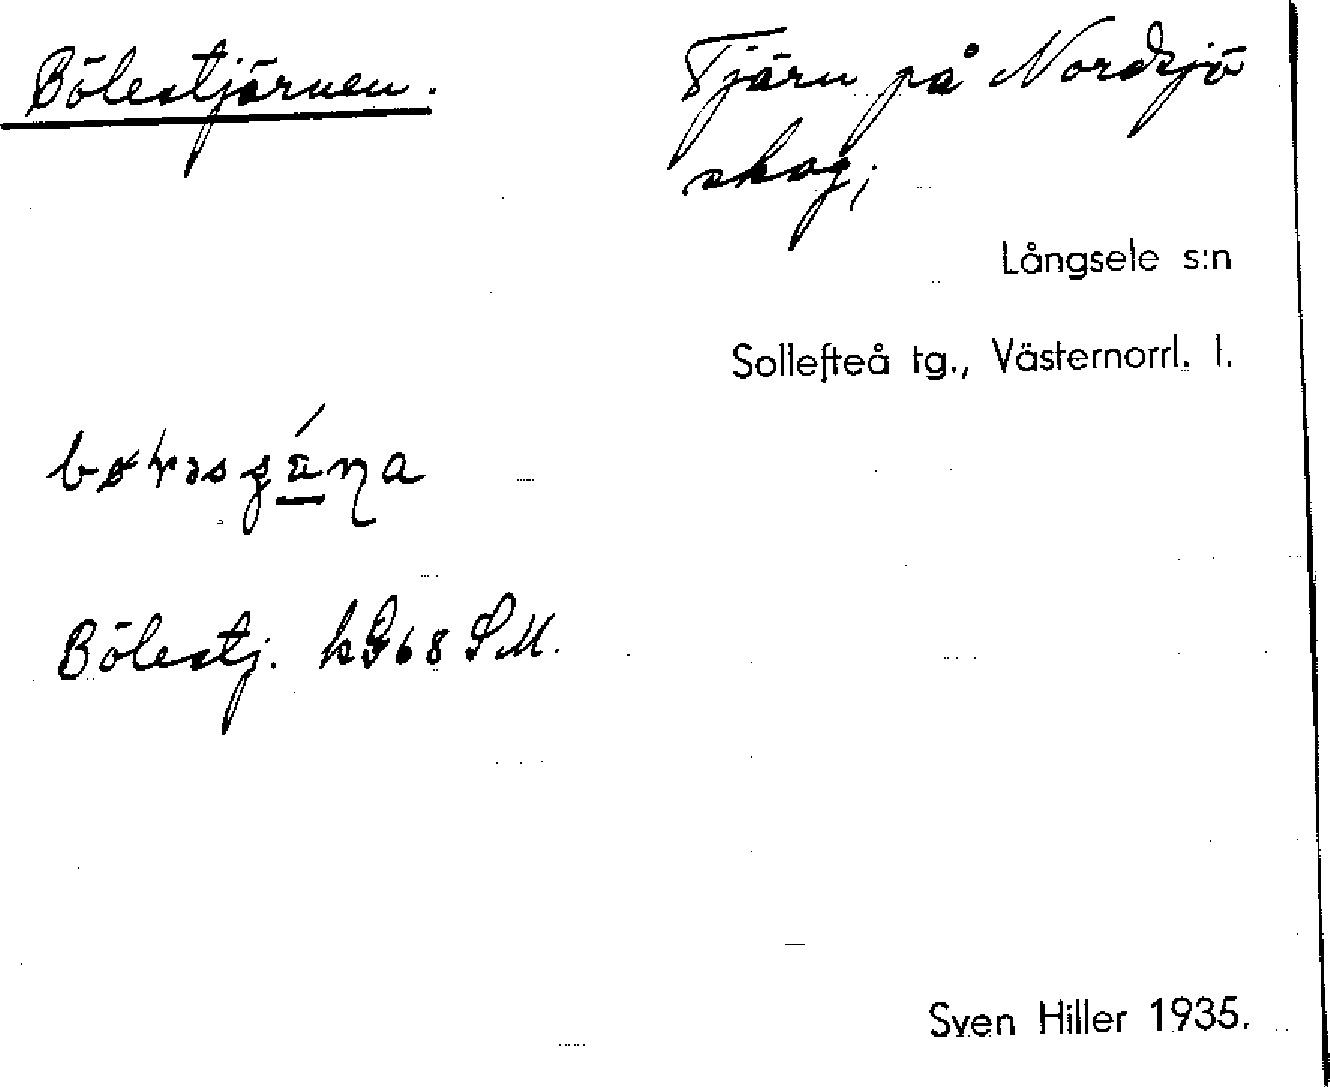 Bölestjärnen.
Tjärn på Nordsjö
skog;
Långsele s:n
Sollefteå tg., Västernorrl. l.
Bölestj. kG68 SM.
Sven Hiller 1935.